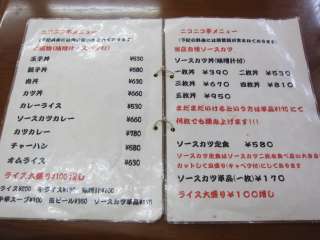 ニコニコ亭メニュー
玉子丼 ¥530
親子丼 ¥580
肉丼 ¥630
カツ丼 ¥660
カレーライス ¥530
ソースカツカレー ¥680
カツカレー ¥780
チャーハン ¥580
オムライス ¥630
ライス大盛り¥100増し
ニコニコ亭メニュー
当店自慢ソースカツ
ソースカツ丼(味噌汁付)
一枚丼 ¥390 二枚丼 ¥530
三枚丼 ¥670 四枚丼 ¥810
五枚丼 ¥950
まだまだいけるという方は単品¥170にて
何枚でも積み上げます!!!
ソースカツ定食 ¥580
ソースカツ単品(一枚)¥170
ライス大盛り¥100増し